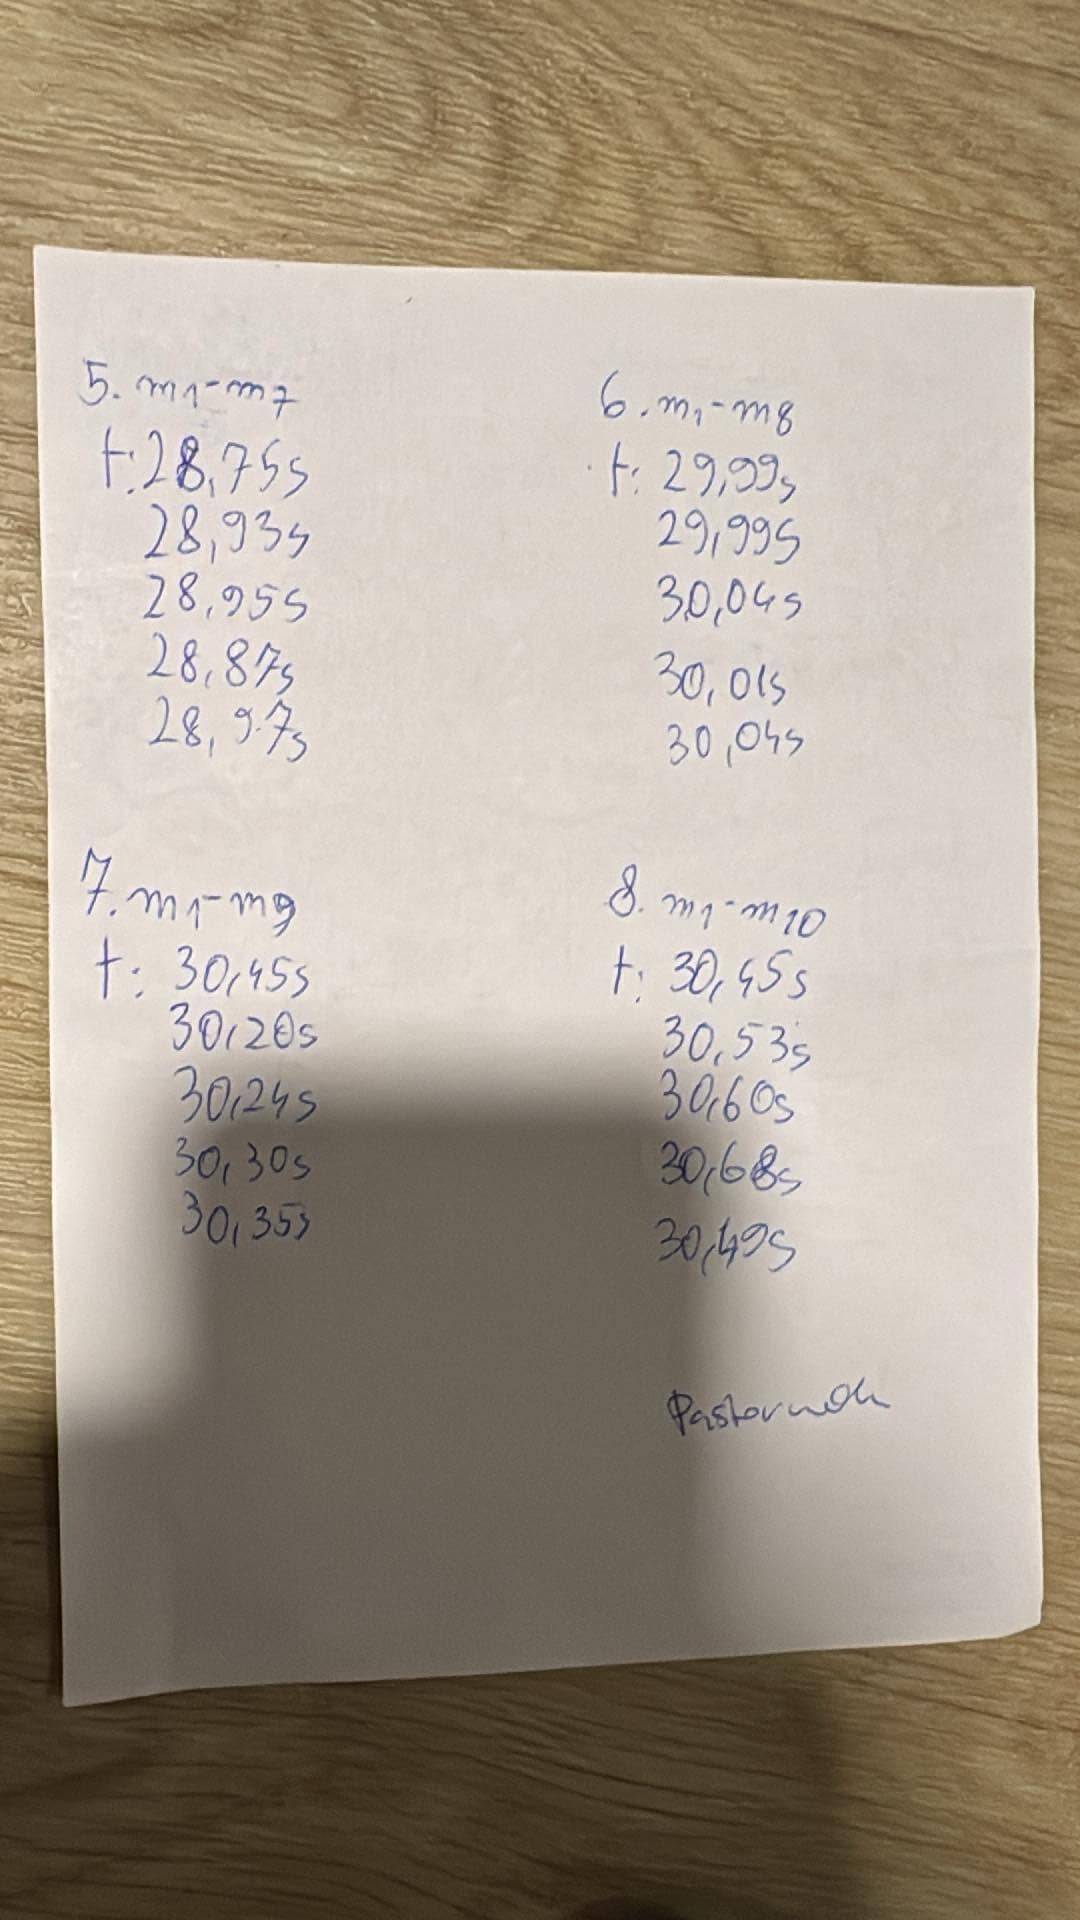 5. m1-m7
t: 28,75s
28,93s
28,95s
28,87s
28,97s
6. m1-m8
t: 29,99s
29,99s
30,04s
30,01s
30,04s
7. m1-m9
t: 30,45s
30,20s
30,24s
30,30s
30,35s
8. m1-m10
t: 30,45s
30,53s
30,60s
30,68s
30,49s